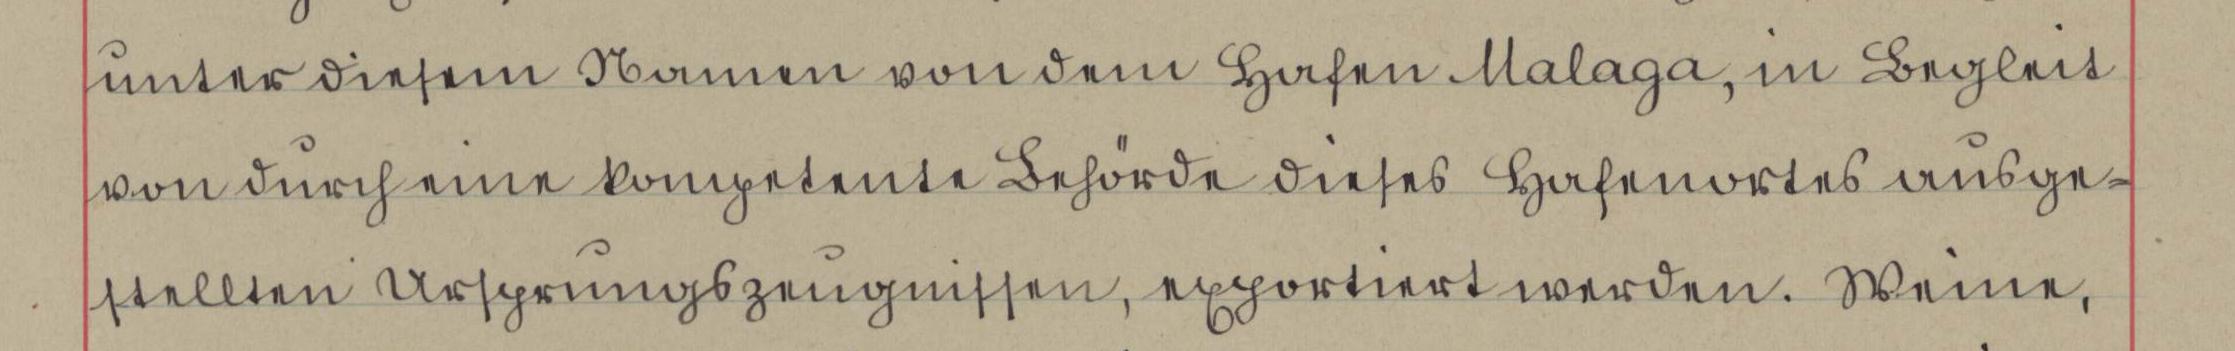 unter diesem Namen von dem Hafen Malaga, in Begleit
von durch eine kompetente Behörde dieses Hafenortes ausge-
stellten Ursprungszeugnissen, exportiert werden. Weine,